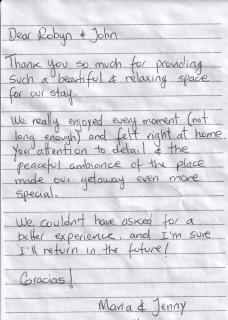 Dear Robyn & John
Thank you so much for providing
such a beautiful & relaxing space
for our stay.
We really enjoyed every moment (not
long enough) and felt right at home.
Your attention to detail & the
peaceful ambiance of the place
made our getaway even more
special.
We couldn't have asked for a
better experience, and I'm sure
I'll return in the future!
Gracias!
Maria & Jenny